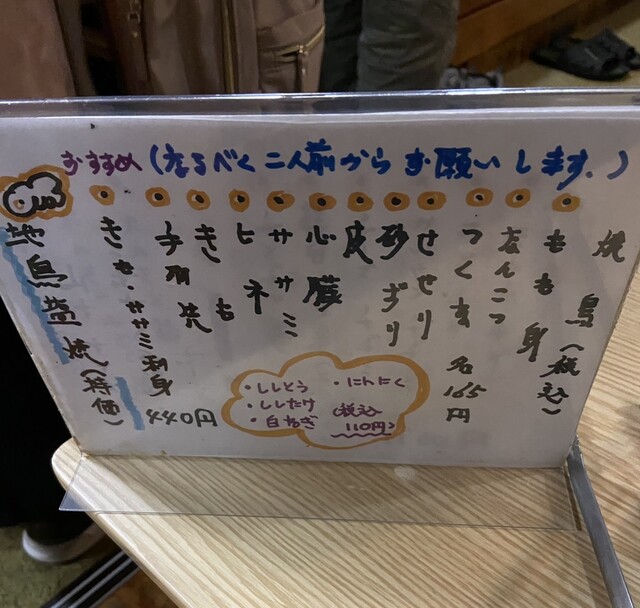 おすすめ(なるべく二人前からお願いします。)
焼鳥(税込)
もも身
なんこつ
つくね 各165円
せせり
砂ずり
皮
心臓
ササミ
ヒネ
きも
手羽焼 440円
きも・ササミ刺身
地鳥塩焼(特価)
・ししとう
・ししたけ
・白ねぎ
・にんにく
(税込110円)